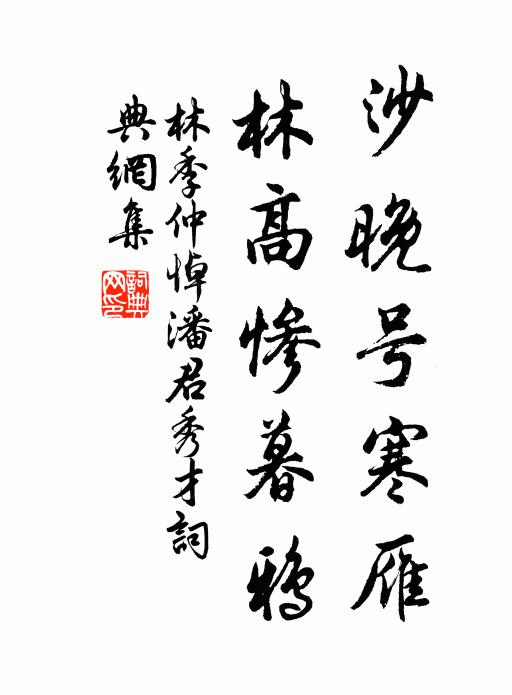 沙晚号寒雁
林高惨暮鴉
林季仲悼潘君秀才詞
典網集
詞典網印